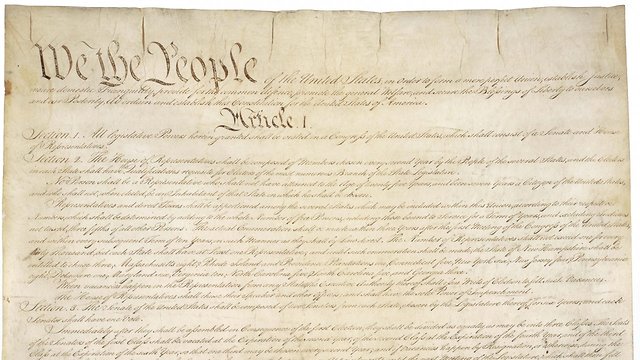 We the People of the United States, in Order to form a more perfect Union, establish Justice,
insure domestic Tranquility, provide for the common defence, promote the general Welfare, and secure the Blessings of Liberty to ourselves
and our Posterity, do ordain and establish this Constitution for the United States of America.
Article. I.
Section. 1. All legislative Powers herein granted shall be vested in a Congress of the United States, which shall consist of a Senate and House
of Representatives.
Section. 2. The House of Representatives shall be composed of Members chosen every second Year by the People of the several States, and the Electors
in each State shall have the Qualifications requisite for Electors of the most numerous Branch of the State Legislature.
No Person shall be a Representative who shall not have attained to the Age of twenty five Years, and been seven Years a Citizen of the United States,
and who shall not, when elected, be an Inhabitant of that State in which he shall be chosen.
Representatives and direct Taxes shall be apportioned among the several States which may be included within this Union, according to their respective
Numbers, which shall be determined by adding to the whole Number of free Persons, including those bound to Service for a Term of Years, and excluding Indians
not taxed, three fifths of all other Persons. The actual Enumeration shall be made within three Years after the first Meeting of the Congress of the United States,
and within every subsequent Term of ten Years, in such Manner as they shall by Law direct. The Number of Representatives shall not exceed one for every
thirty Thousand, but each State shall have at Least one Representative; and until such enumeration shall be made, the State of New Hampshire shall be
entitled to chuse three, Massachusetts eight, Rhode-Island and Providence Plantations one, Connecticut five, New-York six, New Jersey four, Pennsylvania
eight, Delaware one, Maryland six, Virginia ten, North Carolina five, South Carolina five, and Georgia three.
When vacancies happen in the Representation from any State, the Executive Authority thereof shall issue Writs of Election to fill such Vacancies.
The House of Representatives shall chuse their Speaker and other Officers; and shall have the sole Power of Impeachment.
Section. 3. The Senate of the United States shall be composed of two Senators from each State, chosen by the Legislature thereof, for six Years; and each
Senator shall have one Vote.
Immediately after they shall be assembled in Consequence of the first Election, they shall be divided as equally as may be into three Classes. The Seats
of the Senators of the first Class shall be vacated at the Expiration of the second Year, of the second Class at the Expiration of the fourth Year, and of the third